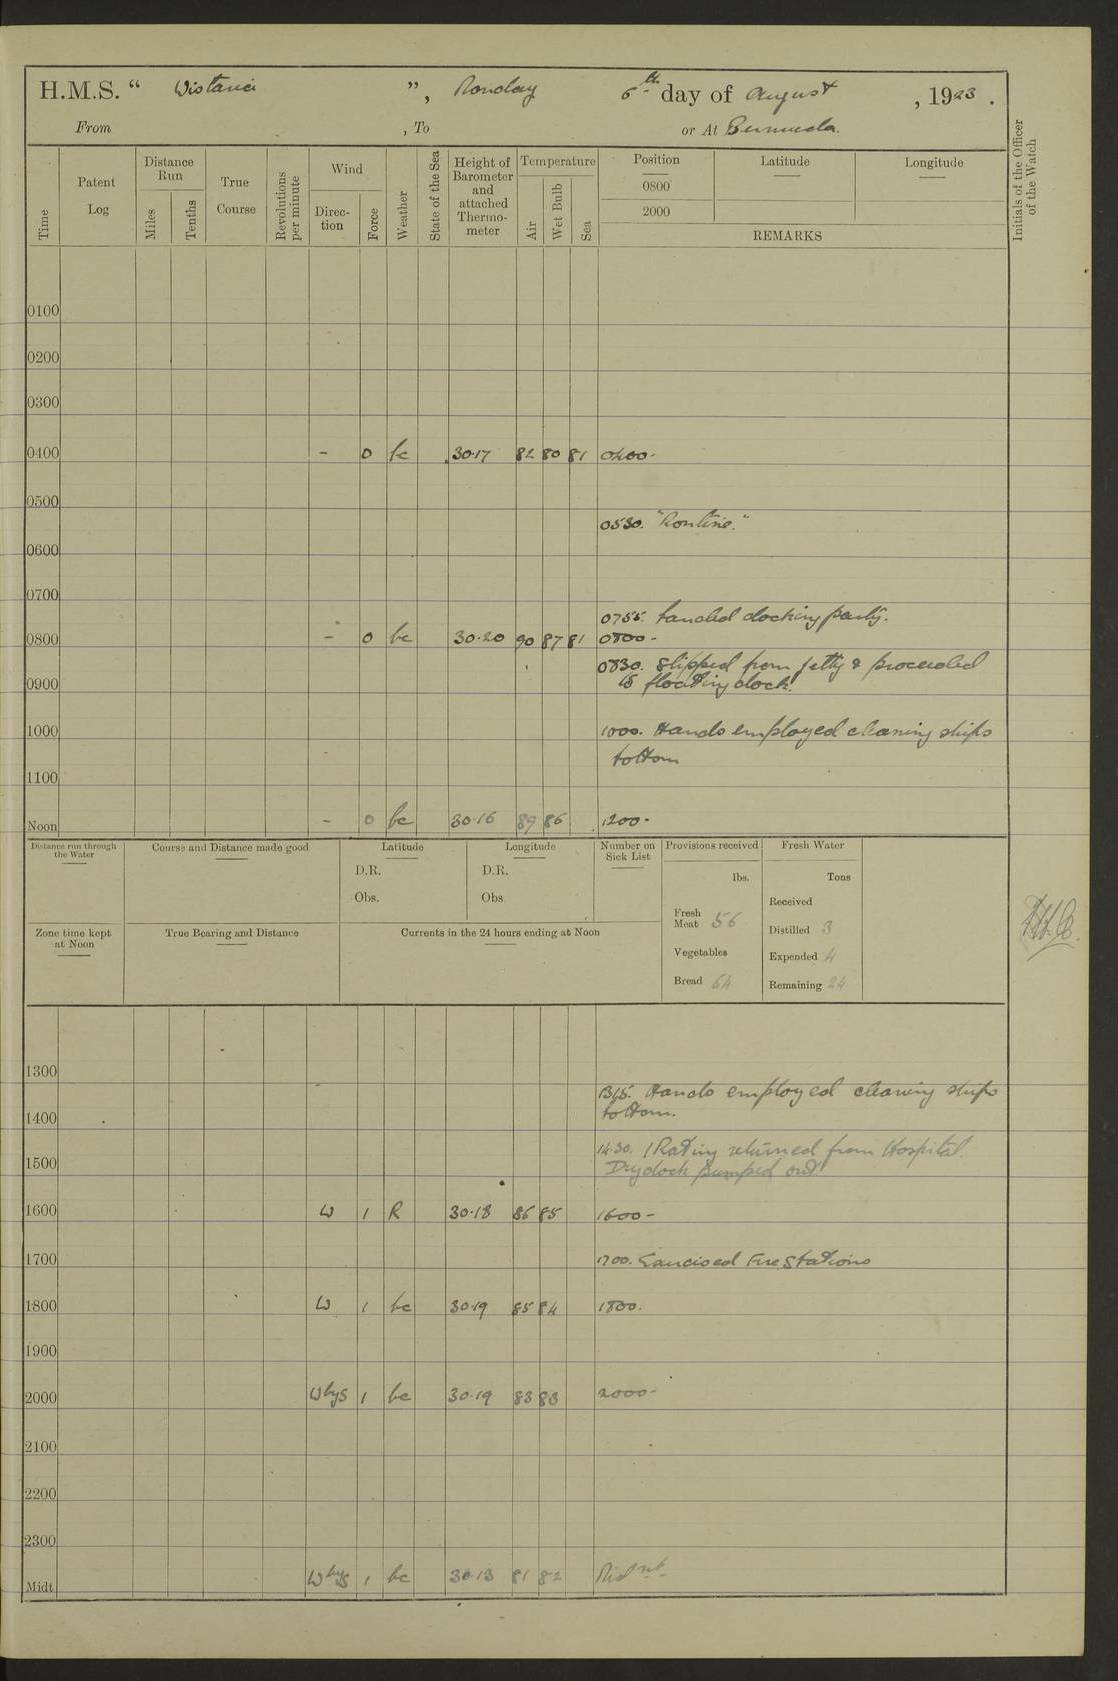 H.M.S. “ Wistaria ”, Monday 6th day of August, 1923.
From , To or At Bermuda.
Time
Patent Log
Distance Run
Miles
Tenths
True Course
Revolutions per minute
Wind
Direction
Force
Weather
State of the Sea
Height of Barometer and attached Thermometer
Temperature
Air
Wet Bulb
Sea
Position
Latitude
Longitude
0800
2000
REMARKS
Initials of the Officer of the Watch
0100
0200
0300
0400 - 0 bc 30.17 82 80 81 0400-
0500
0530. "Routine."
0600
0700
0755. Landed docking party.
0800 - 0 bc 30.20 90 87 81 0800-
0830. Slipped from jetty & proceeded
to floating dock.
0900
1000 1000. Hands employed cleaning ships
bottom
1100
Noon - 0 bc 30.16 89 86 1200-
Distance run through the Water
Course and Distance made good
Latitude
D.R.
Obs.
Longitude
D.R.
Obs
Number on Sick List
Provisions received
lbs.
Fresh Meat 56
Vegetables
Bread 64
Fresh Water
Tons
Received
Distilled 3
Expended 4
Remaining 24
Zone time kept at Noon
True Bearing and Distance
Currents in the 24 hours ending at Noon
1300
1315. Hands employed cleaning ships
bottom.
1400
14.30. 1 Rating returned from Hospital.
Dry dock pumped out.
1500
1600 W 1 R 30.18 86 85 1600-
1700 1700. Exercised Fire Stations
1800 W 1 bc 30.19 85 84 1800.
1900
2000 WbyS 1 bc 30.19 83 83 2000-
2100
2200
2300
Midt. WbyS 1 bc 30.13 81 82 Midnt.